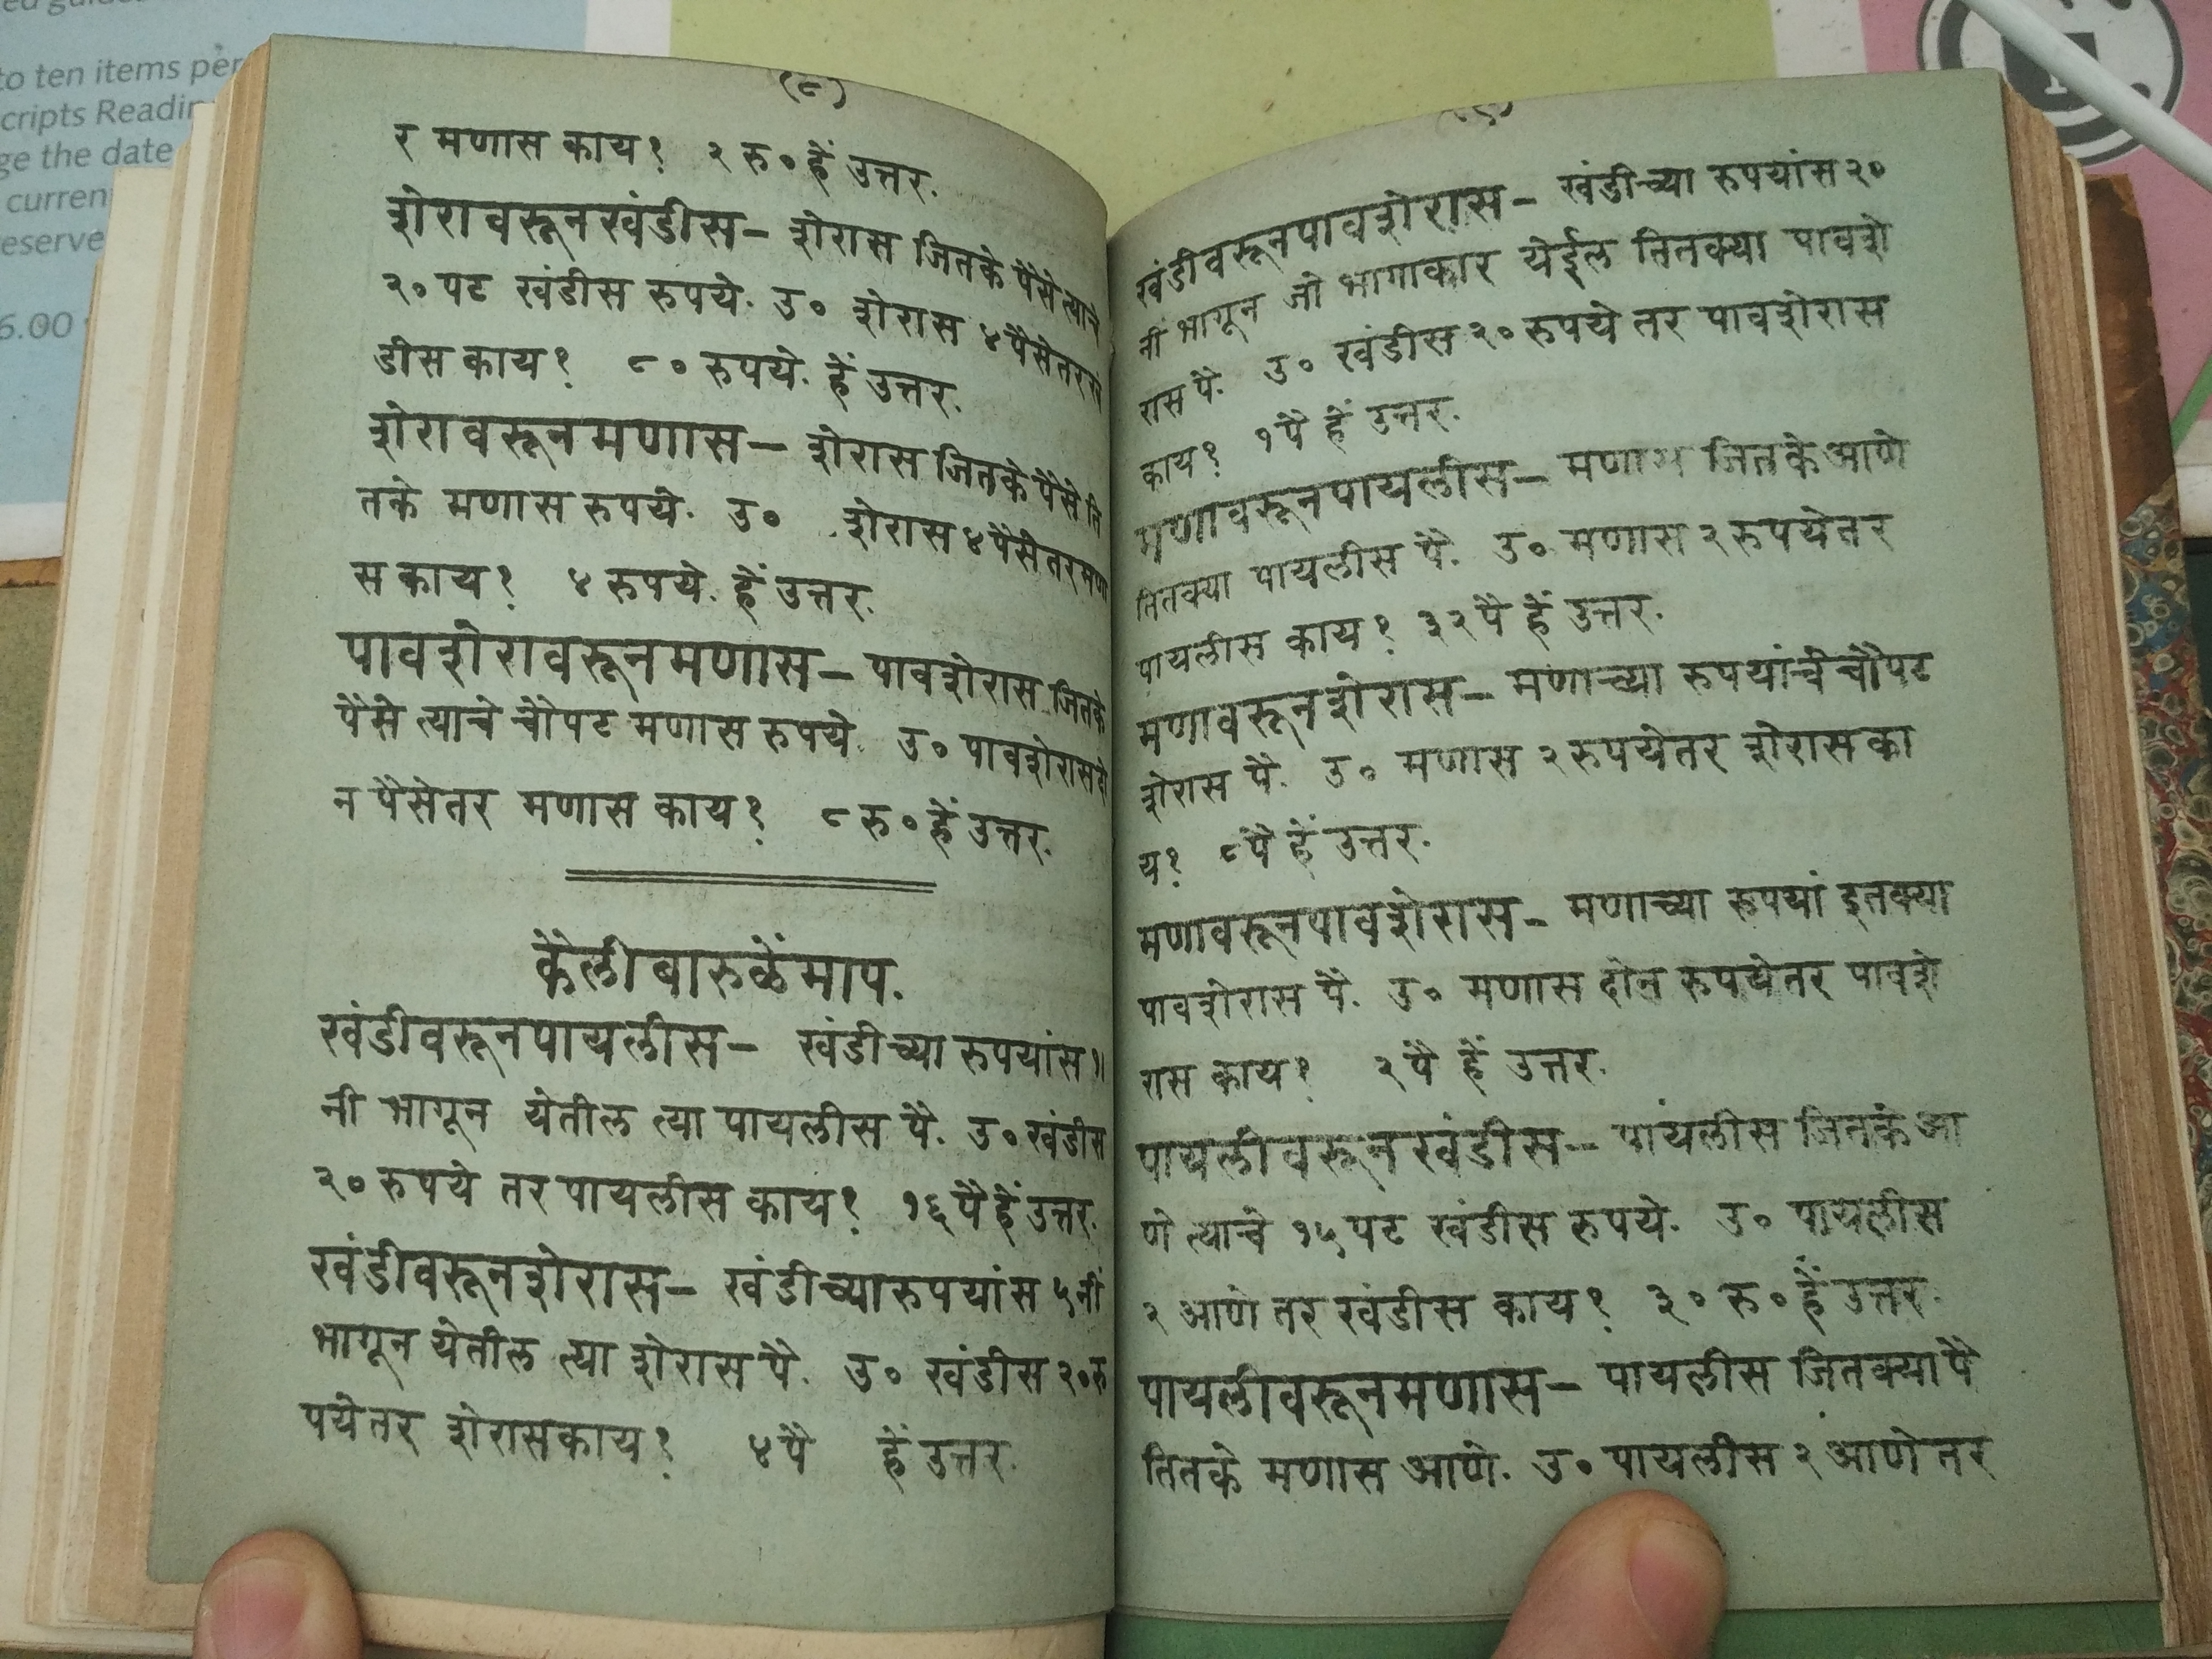 ed guide
to ten items per
cripts Readin
ge the date
current
eserve
6.00
(८)
र मणास काय? २ रु० हें उत्तर.
शेरावरूनखंडीस— शेरास जितके पैसे त्याचे
२० पट खंडीस रुपये. उ० शेरास ४ पैसे तर खं
डीस काय? ८० रुपये. हें उत्तर.
शेरावरूनमणास— शेरास जितके पैसे ति
तके मणास रुपये. उ० शेरास ४ पैसे तर मणा
स काय? ४ रुपये. हें उत्तर.
पावशेरावरूनमणास— पावशेरास जितके
पैसे त्याचे चौपट मणास रुपये. उ० पावशेरास दो
न पैसे तर मणास काय? ८ रु० हें उत्तर.
कैली बारुळें माप.
खंडीवरूनपायलीस— खंडीच्या रुपयांस १।
नी भागून येतील त्या पायलीस पै. उ० खंडीस
२० रुपये तर पायलीस काय? १६ पै हें उत्तर.
खंडीवरूनशेरास— खंडीच्या रुपयांस ५ नीं
भागून येतील त्या शेरास पै. उ० खंडीस २० रु
पये तर शेरास काय? ४ पै हें उत्तर.
(९)
खंडीवरूनपावशेरास— खंडीच्या रुपयांस २०
नी भागून जो भागाकार येईल तितक्या पावशे
रास पै. उ० खंडीस २० रुपये तर पावशेरास
काय? १ पै हें उत्तर.
मणावरूनपायलीस— मणास जितके आणे
तितक्या पायलीस पै. उ० मणास २ रुपये तर
पायलीस काय? ३२ पै हें उत्तर.
मणावरूनशेरास— मणाच्या रुपयांचे चौपट
शेरास पै. उ० मणास २ रुपये तर शेरास का
य? ८ पै हें उत्तर.
मणावरूनपावशेरास— मणाच्या रूपयां इतक्या
पावशेरास पै. उ० मणास दोन रुपये तर पावशे
रास काय? २ पै हें उत्तर.
पायलीवरूनखंडीस— पायलीस जितके आ
णे त्याचे १५ पट खंडीस रुपये. उ० पायलीस
२ आणे तर खंडीस काय? ३० रु० हें उत्तर.
पायलीवरूनमणास— पायलीस जितक्या पै
तितके मणास आणे. उ० पायलीस २ आणे तर